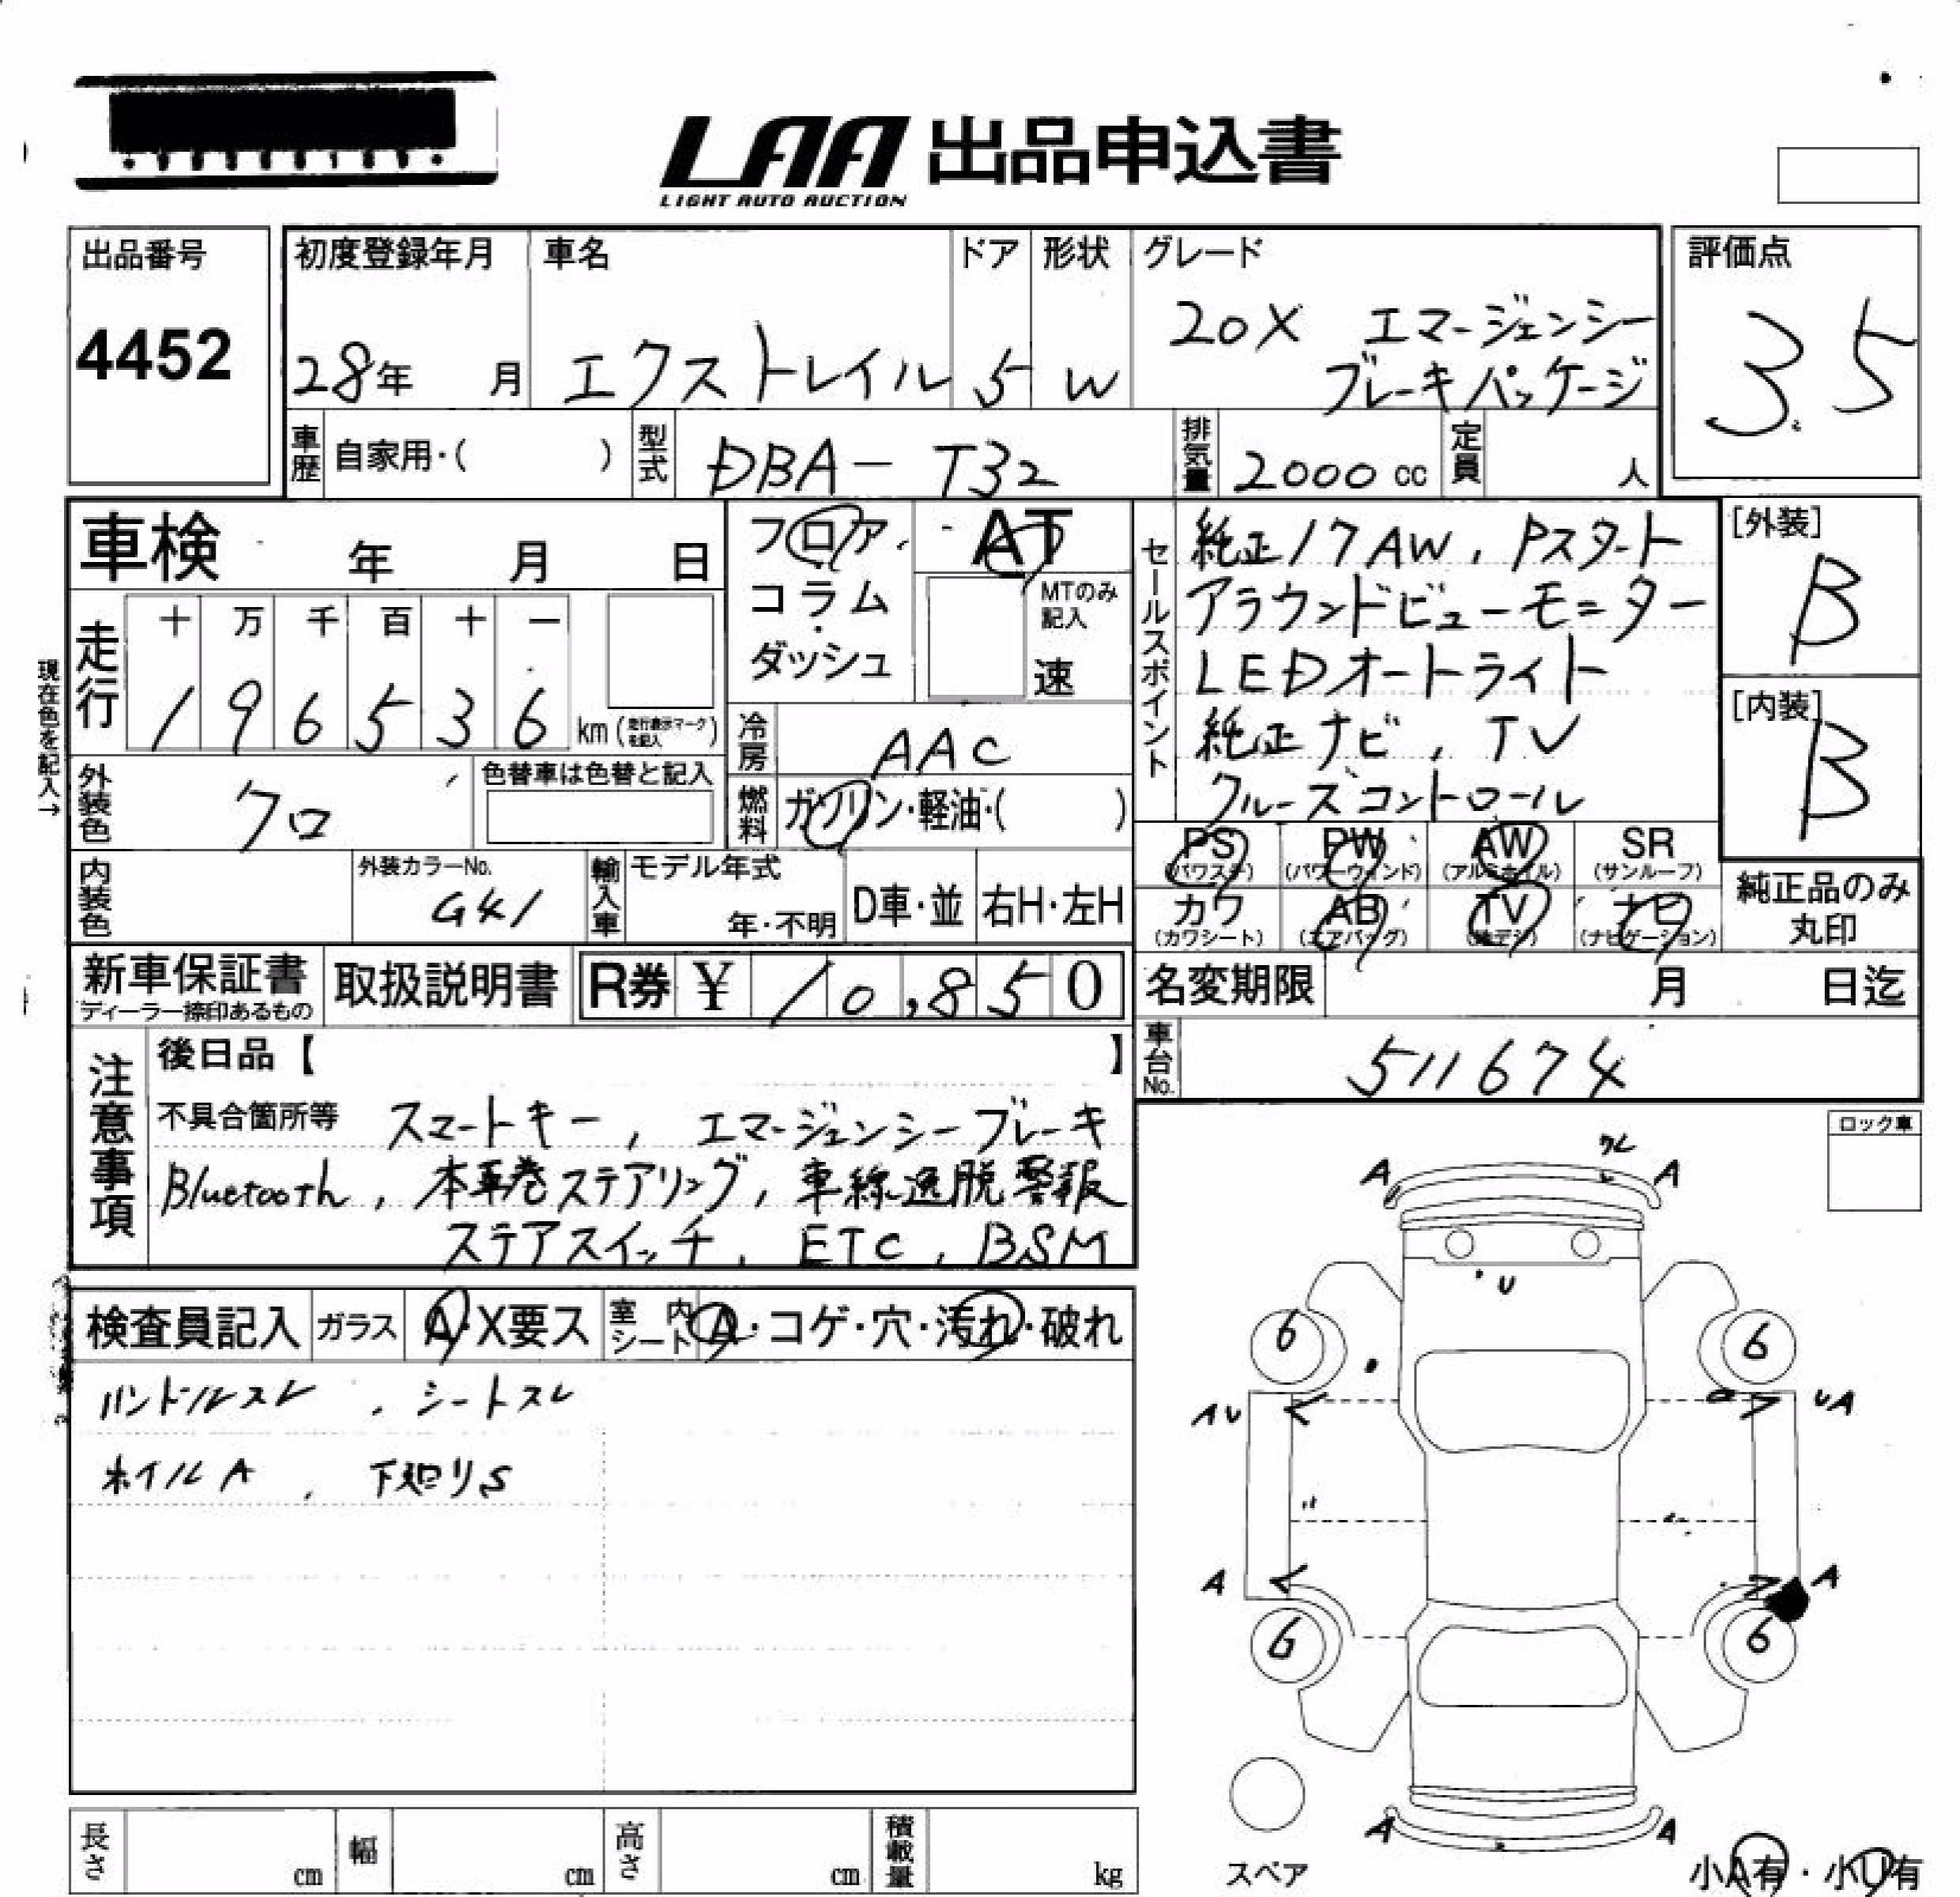 LAA 出品申込書
LIGHT AUTO AUCTION
出品番号
4452
初度登録年月 車名 ドア 形状 グレード 評価点
20X エマージェンシー
28年 月 エクストレイル 5 W ブレーキパッケージ 3.5
車歴 自家用・( ) 型式 DBA-T32 排気量 2000 cc 定員 人
車検 年 月 日
フロア・コラム・ダッシュ
AT
MTのみ記入
速
現在色を記入→
走行
十 万 千 百 十 一
1 9 6 5 3 6 km (走行表示マークを記入)
冷房 AAC
外装色 クロ
色替車は色替と記入
燃料 ガソリン・軽油・( )
内装色
外装カラーNo.
GK1
輸入車 モデル年式
年・不明 D車・並 右H・左H
セールスポイント
純正17AW, Pスタート
アラウンドビューモニター
LEDオートライト
純正ナビ, TV
クルーズコントロール
[外装]
B
[内装]
B
PS PW AW SR
(パワステ) (パワーウィンド) (アルミホイル) (サンルーフ)
カワ AB TV ナビ
(カワシート) (エアバッグ) (地デジ) (ナビゲーション)
純正品のみ
丸印
新車保証書
ディーラー捺印あるもの
取扱説明書 R券 ¥ 10,850
名変期限 月 日迄
車台No. 511674
注意事項
後日品【 】
不具合箇所等 スマートキー, エマージェンシーブレーキ
Bluetooth, 本革巻ステアリング, 車線逸脱警報
ステアスイッチ, ETC, BSM
検査員記入 ガラス A・X要ス 室内シート A・コゲ・穴・汚れ・破れ
ハンドルスレ, シートスレ
ホイルA, 下廻りS
ロック車
A ワレ A
U
6 6
AU UA
A A
6 6
A A
スペア
小A有・小U有
長さ cm 幅 cm 高さ cm 積載量 kg